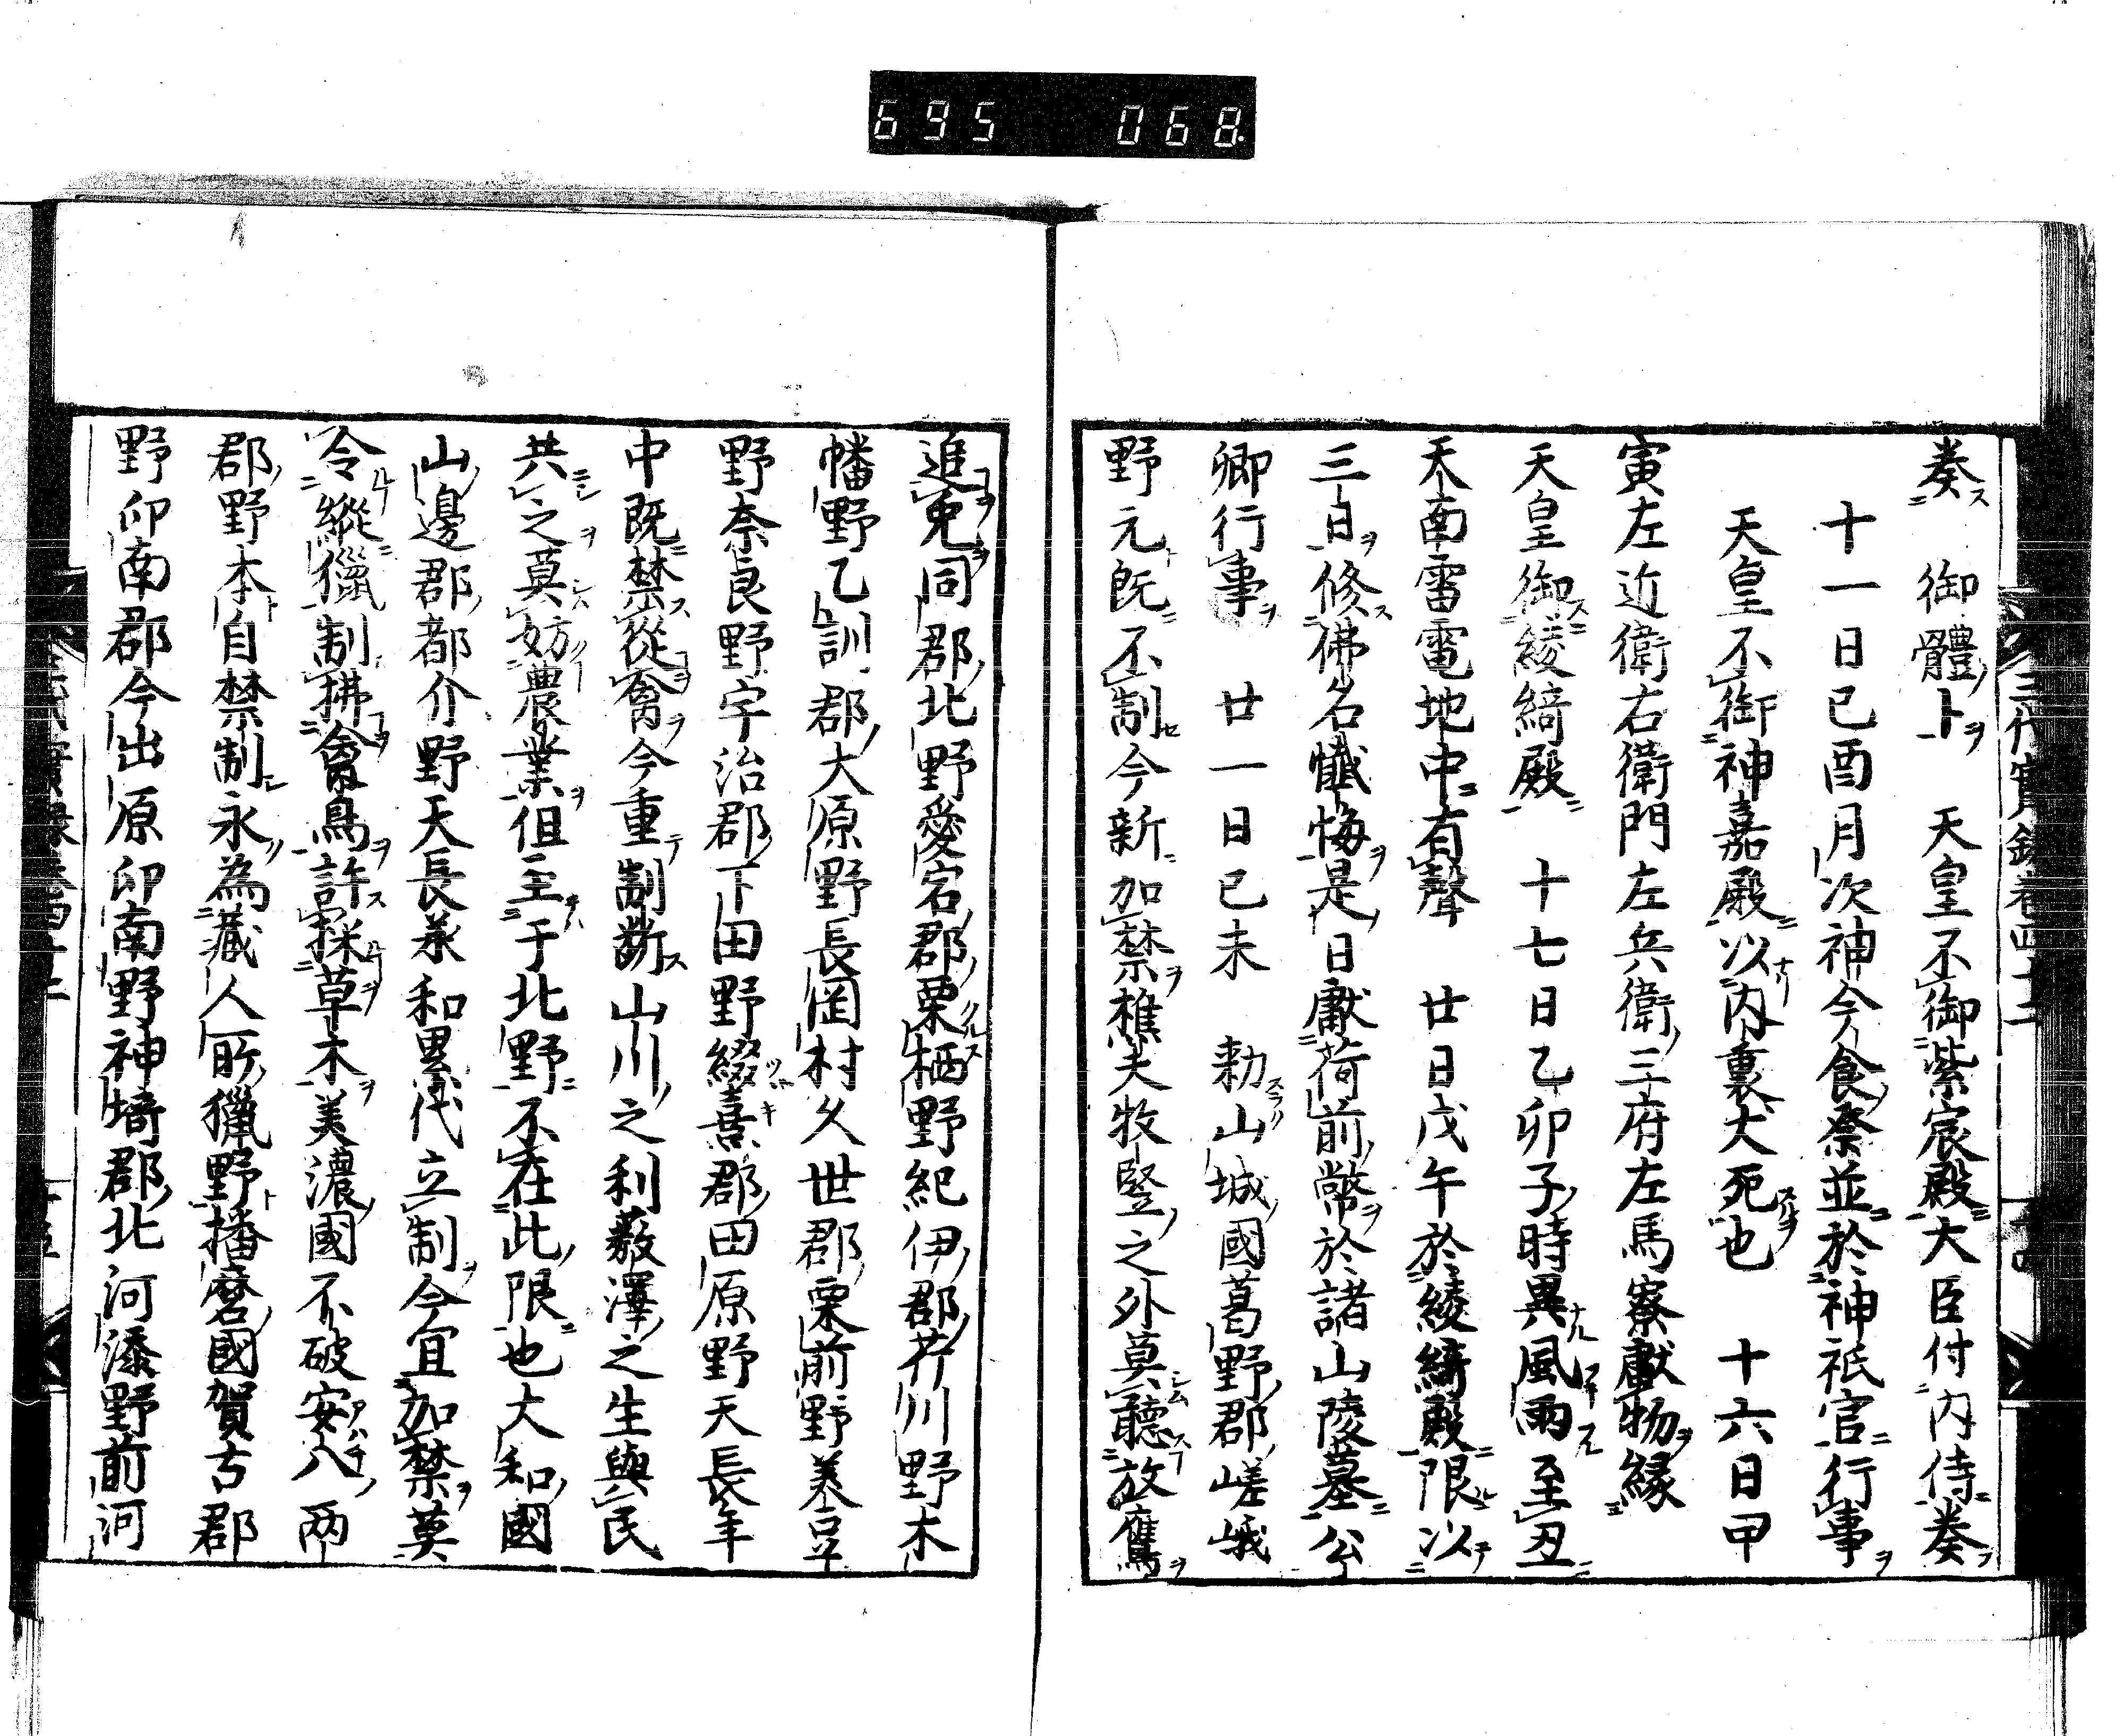 695 068
三代實録卷四十二
奏 御體卜 天皇不御紫宸殿大臣付内侍奏
十一日己酉月次神今食祭並於神祇官行事
天皇不御神嘉殿以内裏犬死也 十六日甲
寅左近衛右衛門左兵衛三府左馬寮獻物縁
天皇御綾綺殿 十七日乙卯子時異風雨至丑
天南雷電地中有聲 廿日戊午於綾綺殿限以
三日修佛名懺悔是日獻荷前幣於諸山陵墓公
卿行事 廿一日己未 勅山城國葛野郡嵯峨
野元既不制今新加禁樵夫牧竪之外莫聽放鷹
進兎同郡北野愛宕郡栗栖野紀伊郡芹川野木
幡野乙訓郡大原野長岡村久世郡栗前野美豆
野奈良野宇治郡下田野綴喜郡田原野天長年
中既禁從禽今重制斷山川之利藪澤之生與民
共之莫妨農業但至于北野不在此限也大和國
山邊郡都介野天長承和累代立制今宜加禁莫
令縱獵制拂禽鳥許採草木美濃國不破安八兩
郡野本自禁制永為藏人所獵野播磨國賀古郡
野印南郡今出原印南野神埼郡北河添野前河